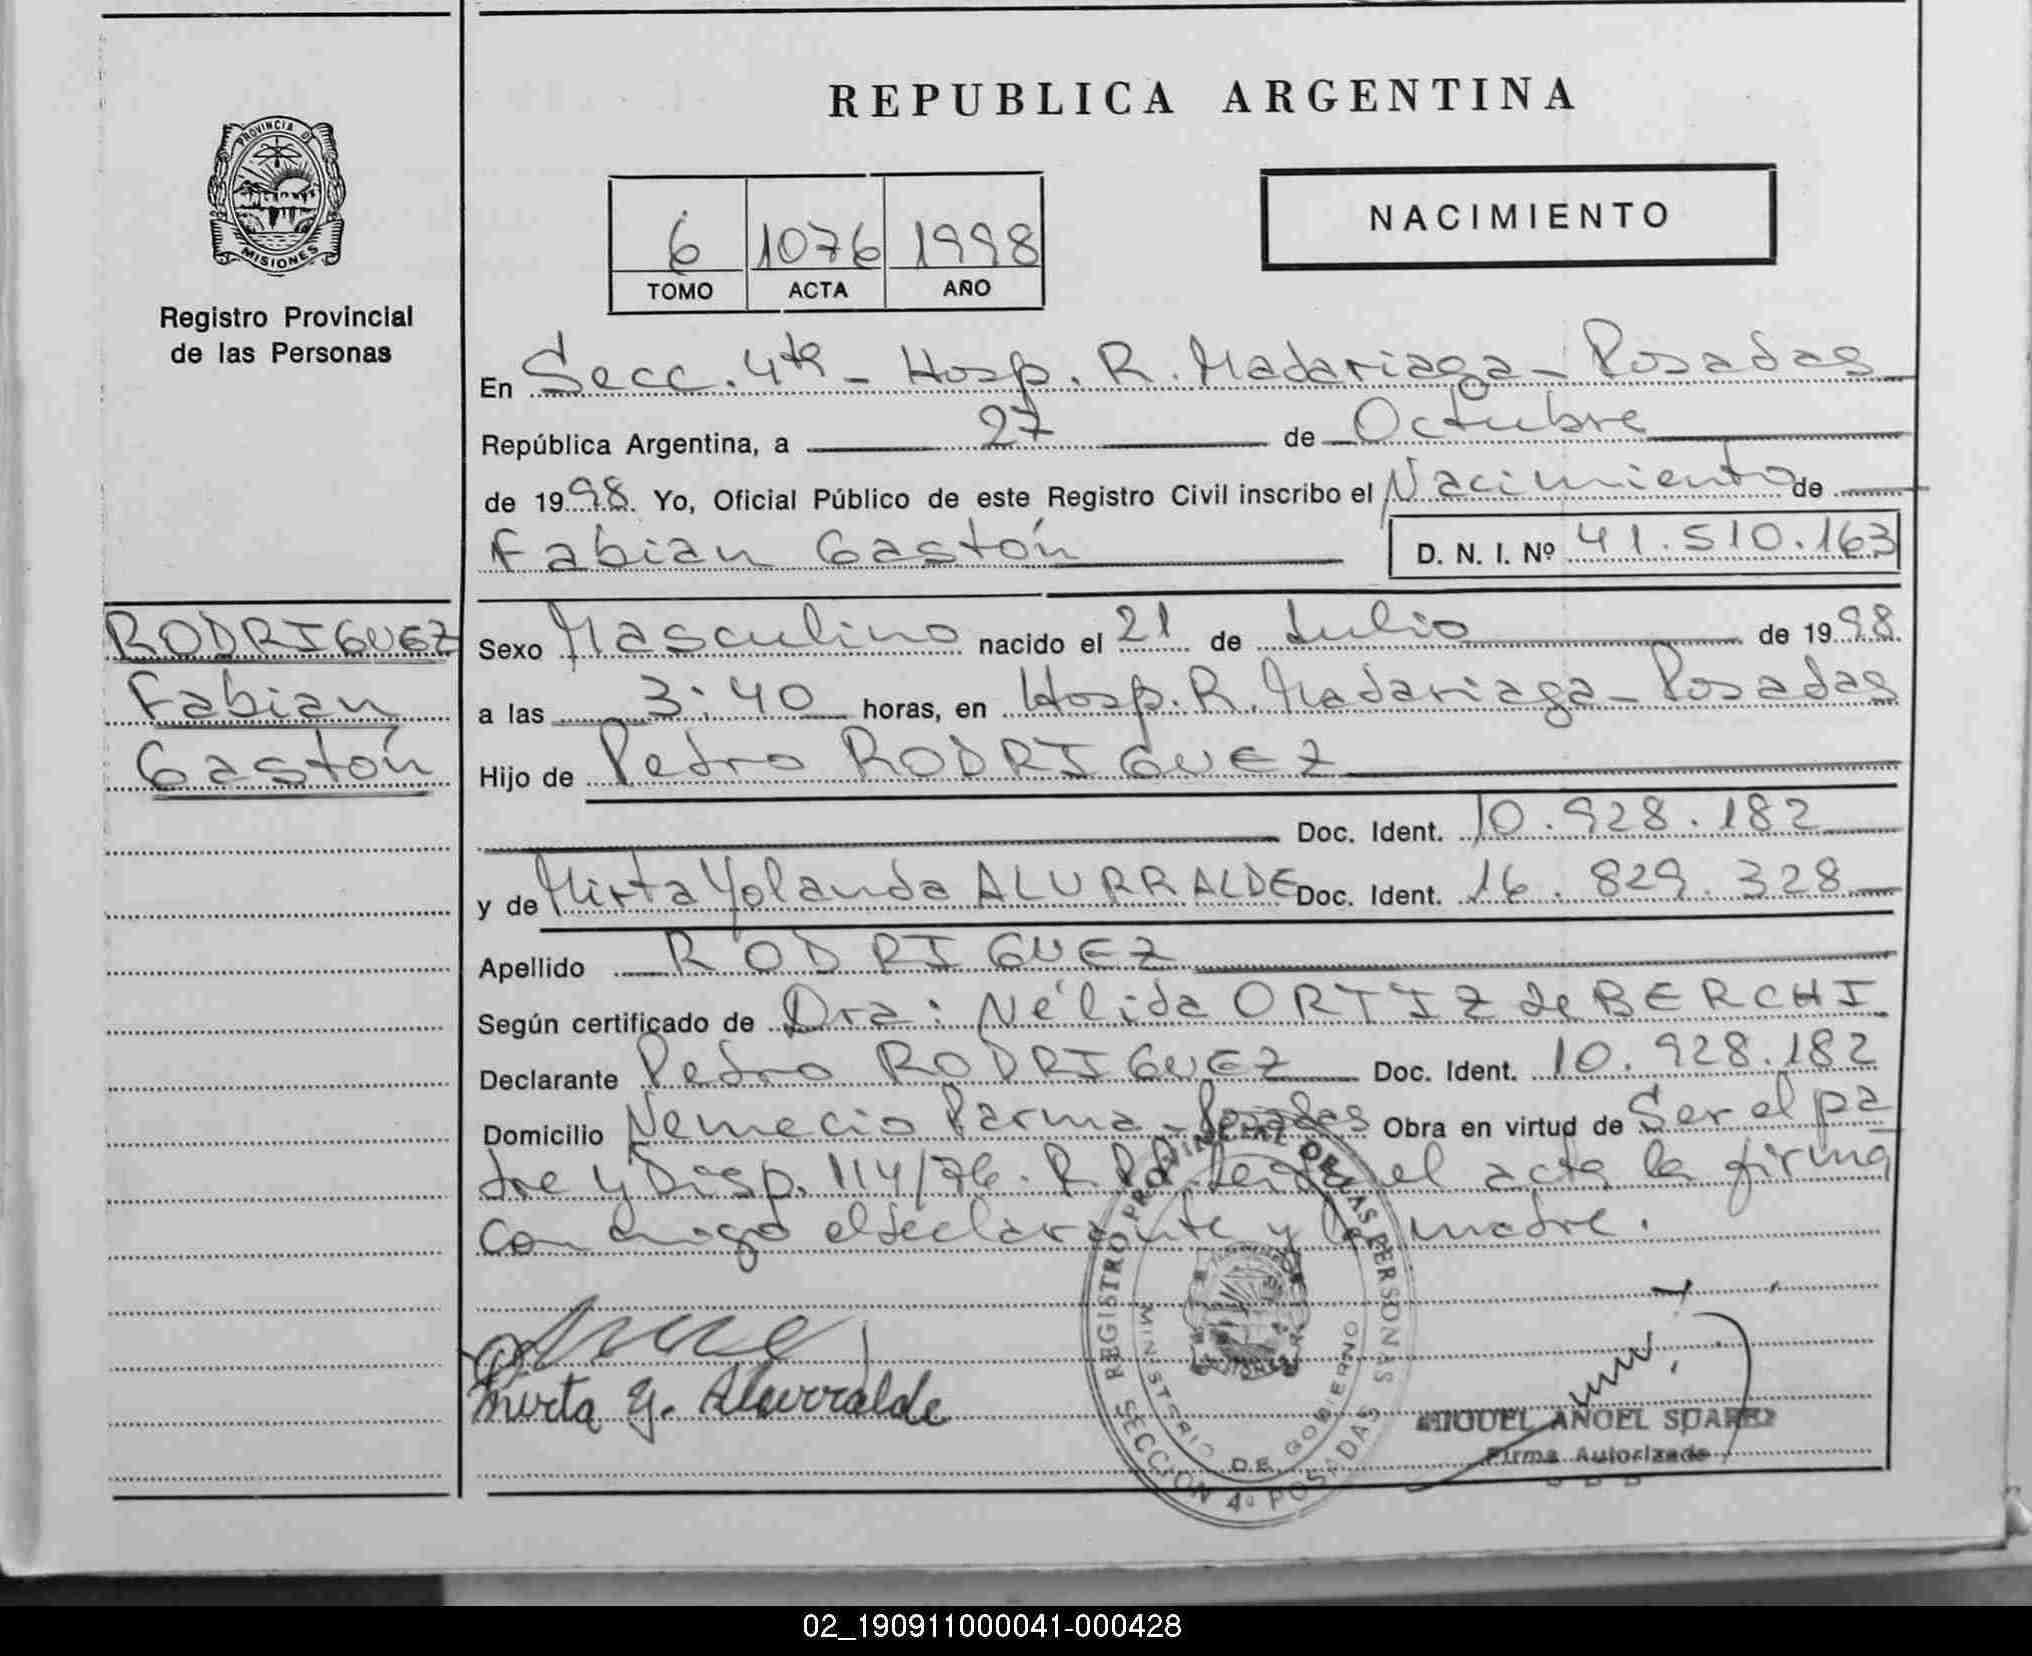 REPUBLICA ARGENTINA
PROVINCIA DE
MISIONES
Registro Provincial
de las Personas
6 1076 1998
TOMO ACTA AÑO
NACIMIENTO
En Secc. 4ta - Hosp. R. Madariaga - Posadas
República Argentina, a 27 de Octubre
de 1998. Yo, Oficial Público de este Registro Civil inscribo el Nacimiento de
Fabian Gastón D. N. I. Nº 41.510.163
RODRIGUEZ
Fabian
Gastón
Sexo Masculino nacido el 21 de Julio de 1998.
a las 3:40 horas, en Hosp. R. Madariaga - Posadas
Hijo de Pedro RODRIGUEZ
Doc. Ident. 10.928.182
y de Mirta Yolanda ALURRALDE Doc. Ident. 16.829.328
Apellido RODRIGUEZ
Según certificado de Dra: Nélida ORTIZ de BERCHI
Declarante Pedro RODRIGUEZ Doc. Ident. 10.928.182
Domicilio Nemecio Parma - Posadas Obra en virtud de Ser el pa
dre y Disp. 114/76. R.P.P. Leida el acta la firma
conmigo el declarante y la madre.
REGISTRO PROVINCIAL DE LAS PERSONAS
MINISTERIO DE GOBIERNO
SECCION 4ª POSADAS
Mirta Y. Alurralde
MIGUEL ANGEL SUAREZ
Firma Autorizada
02_190911000041-000428